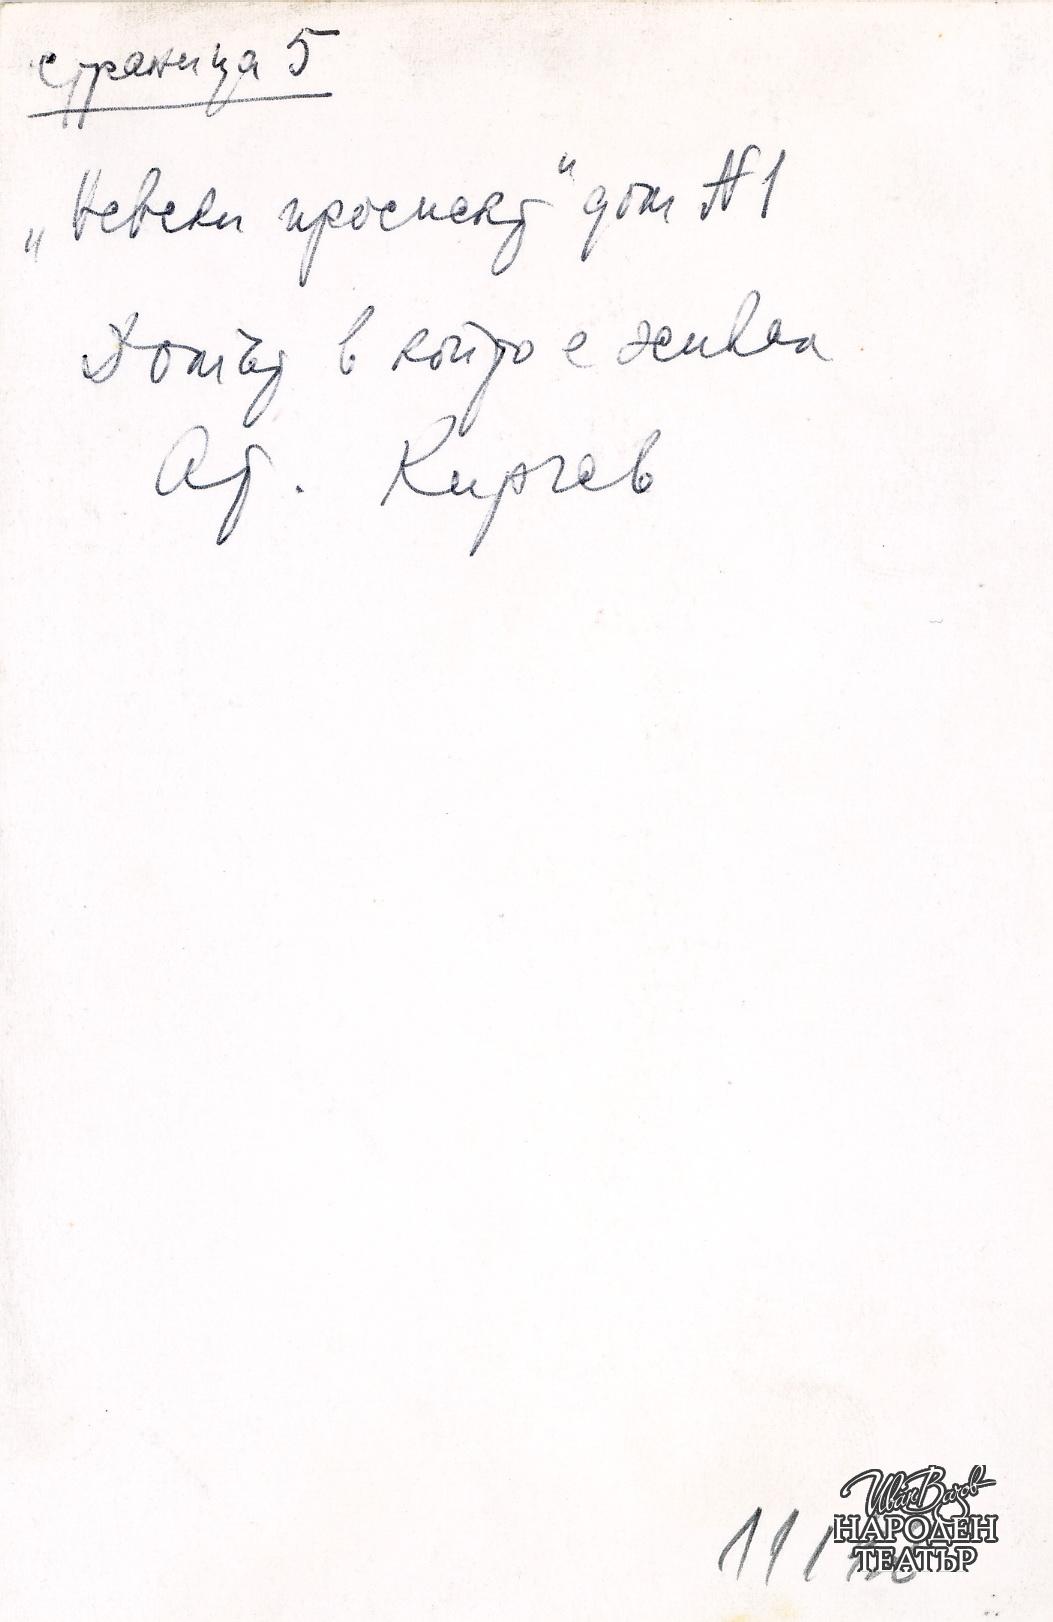 страница 5
„Невски проспект“ дом №1
Домът в който е живял
Ат. Кирчев
11/
Иван Вазов
НАРОДЕН
ТЕАТЪР